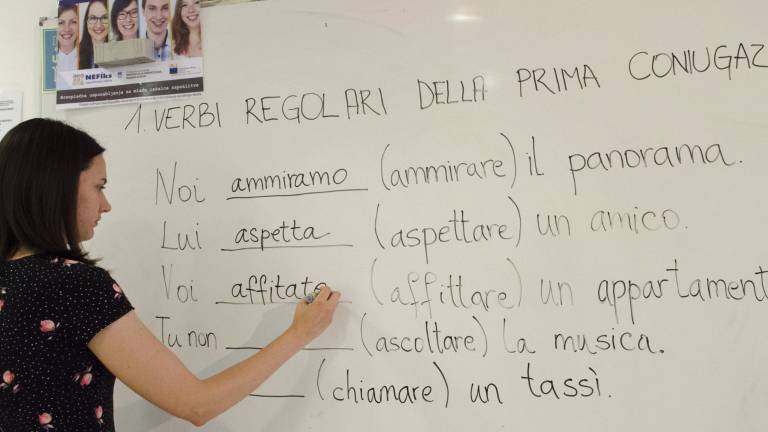 NEFIKS
Brezplačna usposabljanja za mlade iskalce zaposlitve
1. VERBI REGOLARI DELLA PRIMA CONIUGAZ
Noi ammiramo (ammirare) il panorama.
Lui aspetta (aspettare) un amico.
Voi affitate (affittare) un appartament
Tu non (ascoltare) la musica.
(chiamare) un tassì.